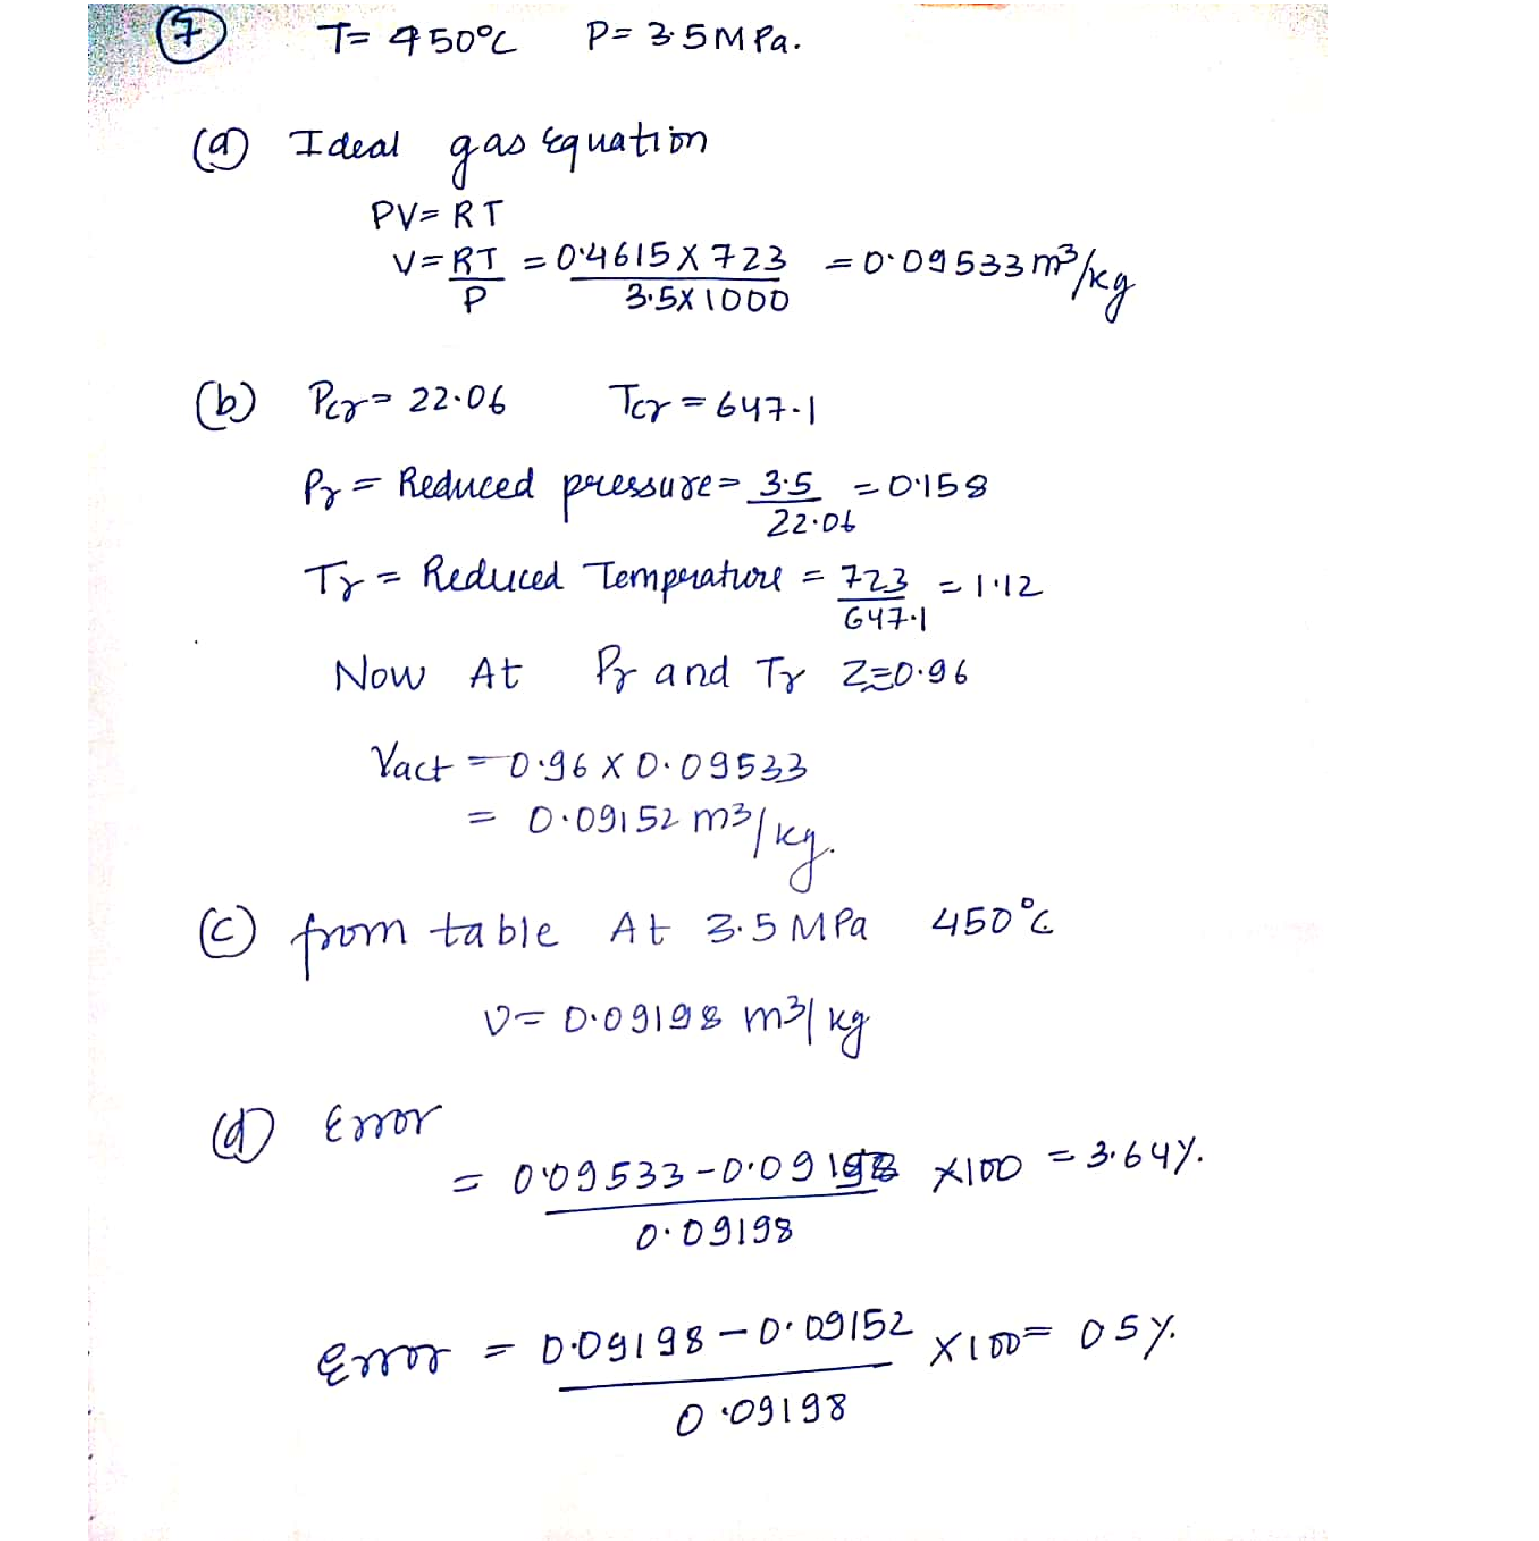 7 T= 450°C P= 3.5MPa.
(a) Ideal gas Equation
PV= RT
V= RT/P = 0.4615 X 723 / 3.5X1000 = 0.09533 m³/kg
(b) Pcr= 22.06 Tcr = 647.1
Pr = Reduced pressure = 3.5/22.06 = 0.158
Tr = Reduced Temperature = 723/647.1 = 1.12
Now At Pr and Tr Z=0.96
Vact = 0.96 X 0.09533
= 0.09152 m3/kg.
(c) from table At 3.5 MPa 450°C
V= 0.09198 m3/kg
(d) Error
= 0.09533-0.09198 / 0.09198 X100 = 3.64%.
Error = 0.09198-0.09152 / 0.09198 X100= 0.5%.